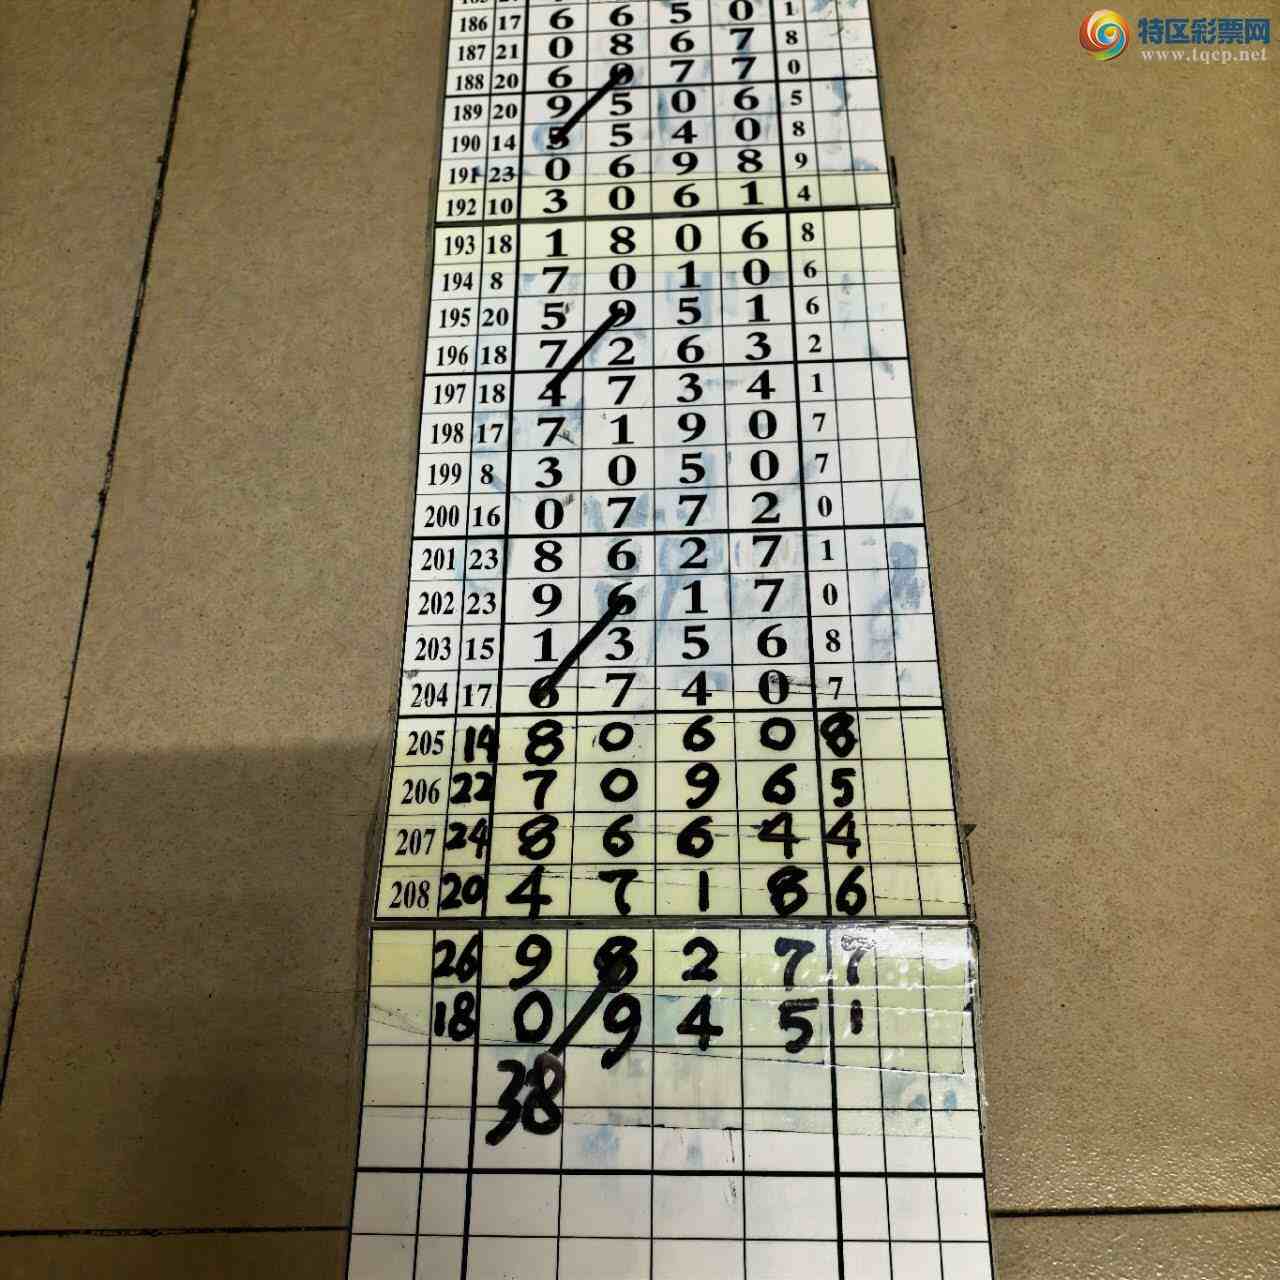 特区彩票网
www.tqcp.net
186 17 6 6 5 0 1
187 21 0 8 6 7 8
188 20 6 0 7 7 0
189 20 9 5 0 6 5
190 14 5 5 4 0 8
191 23 0 6 9 8 9
192 10 3 0 6 1 4
193 18 1 8 0 6 8
194 8 7 0 1 0 6
195 20 5 9 5 1 6
196 18 7 2 6 3 2
197 18 4 7 3 4 1
198 17 7 1 9 0 7
199 8 3 0 5 0 7
200 16 0 7 7 2 0
201 23 8 6 2 7 1
202 23 9 6 1 7 0
203 15 1 3 5 6 8
204 17 6 7 4 0 7
205 14 8 0 6 0 8
206 22 7 0 9 6 5
207 24 8 6 6 4 4
208 20 4 7 1 8 6
26 9 8 2 7 7
18 0 9 4 5 1
38